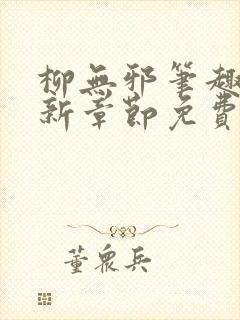 柳無邪筆趣
新章節免費
董眾兵